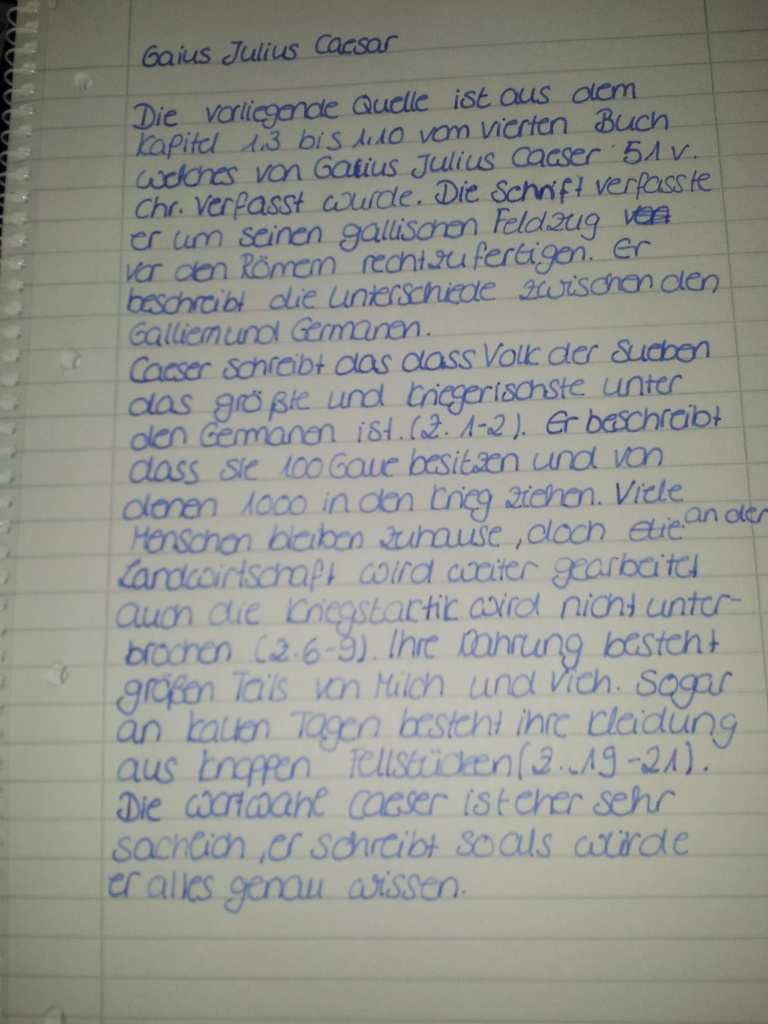 Gaius Julius Caesar
Die vorliegende Quelle ist aus dem
Kapitel 1.3 bis 1.10 vom vierten Buch
welches von Gaius Julius Caeser 51 v.
Chr. verfasst wurde. Die Schrift verfasste
er um seinen gallischen Feldzug
vor den Römern rechtzufertigen. Er
beschreibt die Unterschiede zwischen den
Galliern und Germanen.
Caeser schreibt das dass Volk der Sueben
das größte und kriegerischste unter
den Germanen ist. (Z. 1-2). Er beschreibt
dass sie 100 Gaue besitzen und von
denen 1000 in den Krieg ziehen. Viele
Menschen bleiben zuhause, doch an der
Landwirtschaft wird weiter gearbeitet
auch die Kriegstactik wird nicht unter-
brochen (Z. 6-9). Ihre Nahrung besteht
größen Teils von Milch und Vieh. Sogar
an kalten Tagen besteht ihre Kleidung
aus knappen Fellstücken (Z. 19-21).
Die Wortwahl Caeser ist eher sehr
sachlich, er schreibt so als würde
er alles genau wissen.